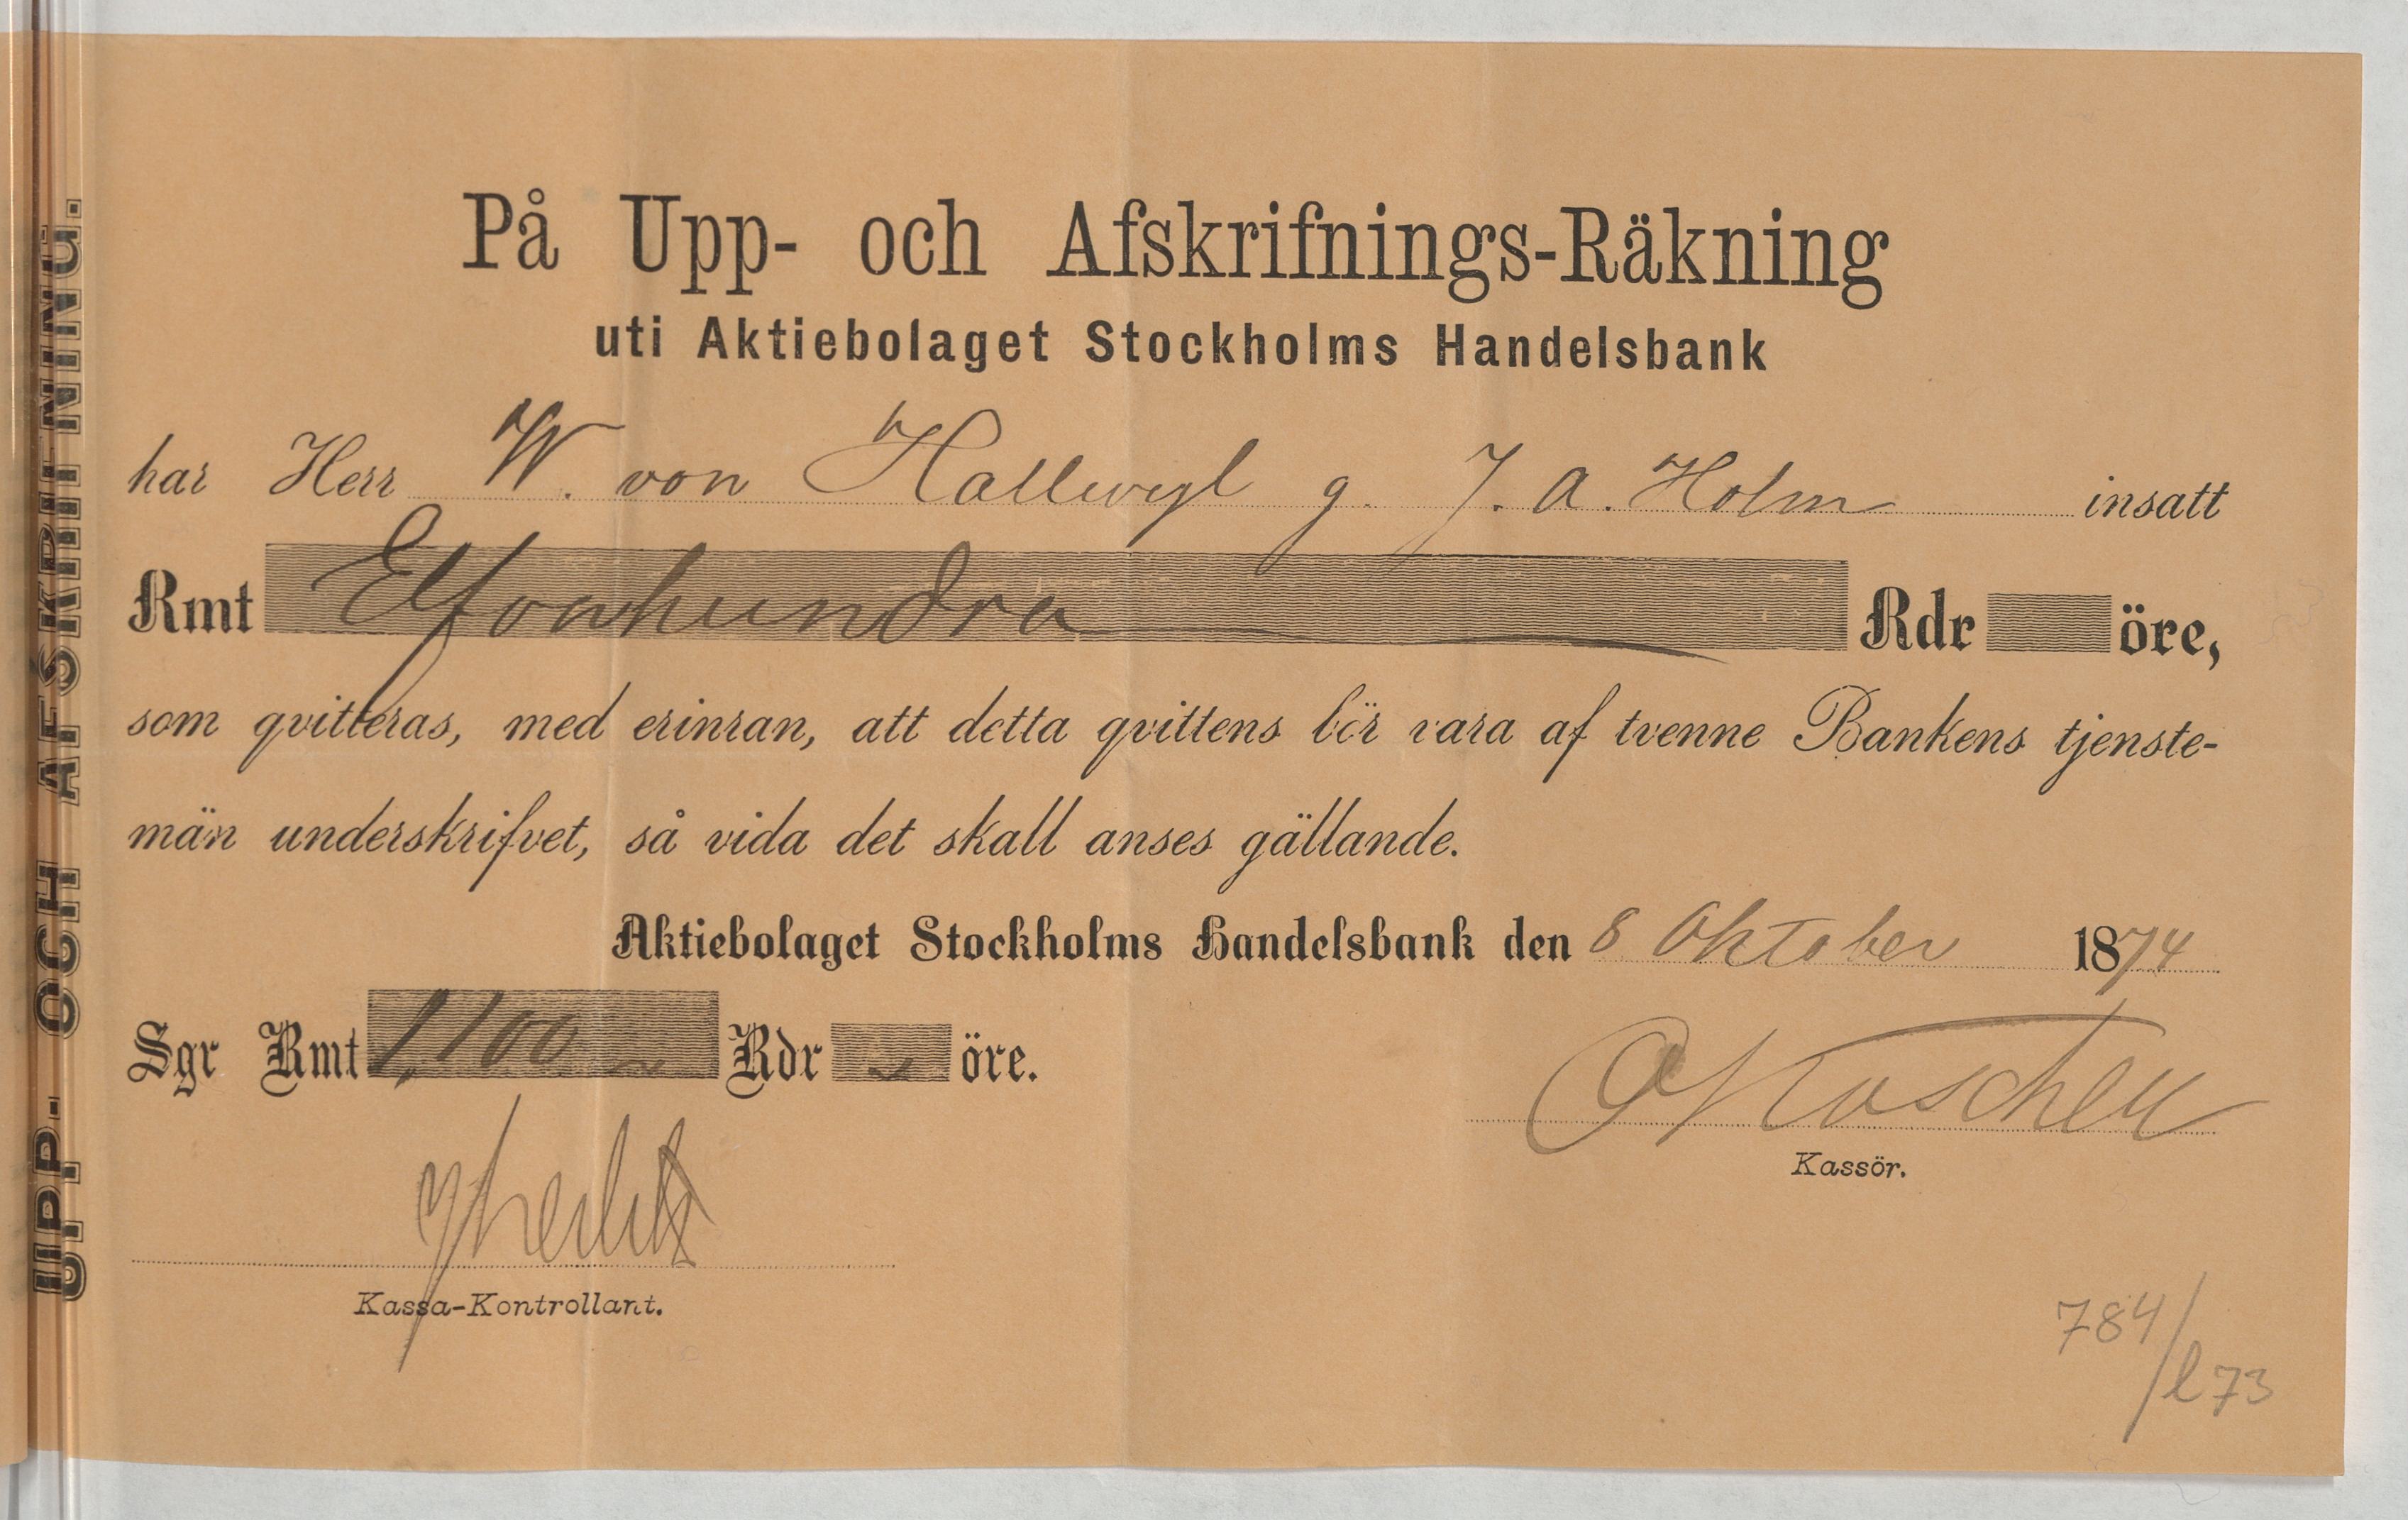 UPP- OCH AFSKRIFNING.
På Upp- och Afskrifnings-Räkning
uti Aktiebolaget Stockholms Handelsbank
har Herr W. von Hallwyl g. J. A. Holm insatt
Rmt Elfvahundra Rdr öre,
som qvitteras, med erinran, att detta qvittens bör vara af tvenne Bankens tjenste-
män underskrifvet, så vida det skall anses gällande.
Aktiebolaget Stockholms Handelsbank den 8 Oktober 1874
Sgr Rmt 1,100 Rdr öre.
Kassör.
Kassa-Kontrollant.
784/l 73